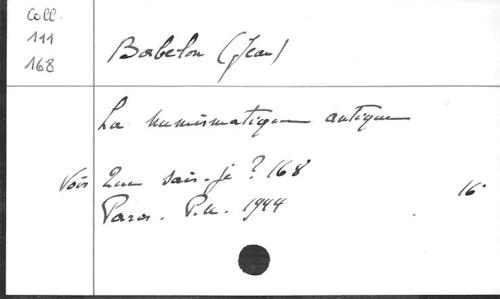 Coll.
111
168
Babelon (Jean)
La numismatique antique
Voir Que sais-je ? 168
Paris. P.U. 1944
16°